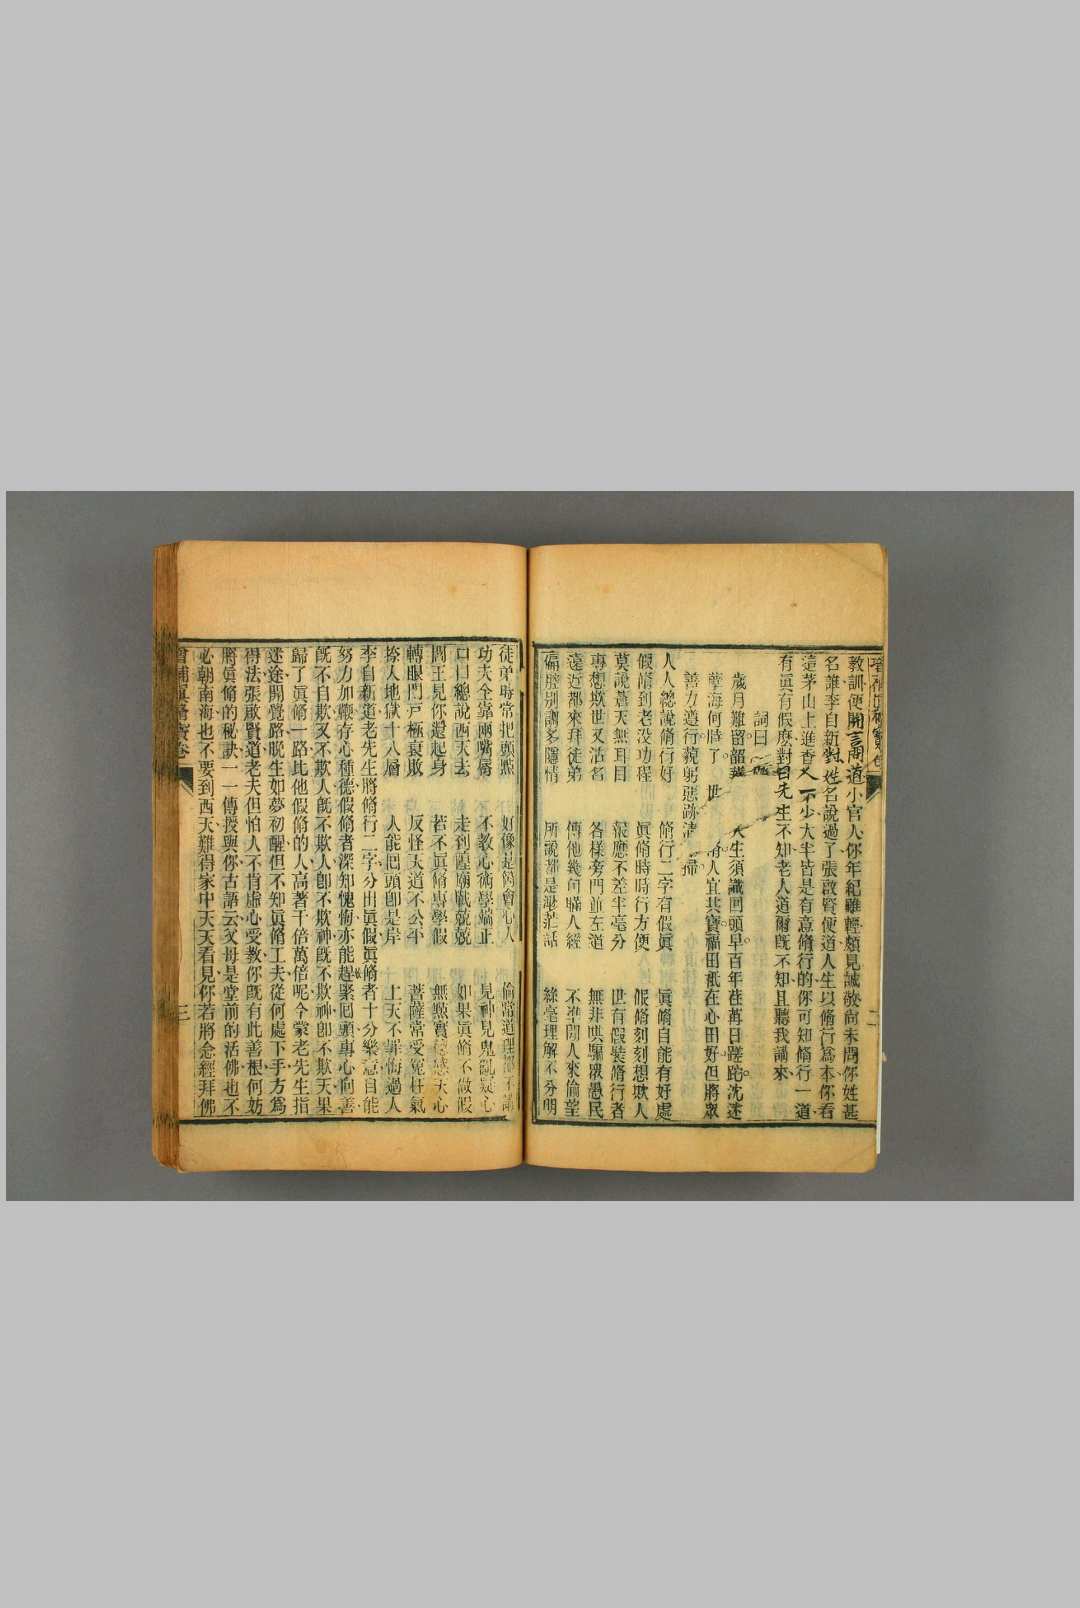 教訓便開言問道小官人你年紀雖輕頗見誠敬尚未問你姓甚
名誰李自新對姓名說過了張啟賢便道人生以脩行為本你看
這茅山上進香人不少大半皆是有意脩行的你可知脩行一道
有眞有假麼對曰先生不知老人道爾既不知且聽我講來
詞曰
歲月難留韶華 人生須識回頭早百年荏苒日蹉跎沈迷
孽海何時了 世 人宜共寶福田祗在心田好但將眾
善力遵行 躬惡跡清 掃
人人總說脩行好 脩行二字有假眞 眞脩自能有好處
假脩到老没功程 眞脩時時行方便 假脩刻刻想欺人
莫說蒼天無耳目 報應不差半毫分 世有假裝脩行者
專想欺世又沽名 各樣旁門並左道 無非哄騙眾愚民
遠近都來拜徒弟 傳他幾句瞞人經 不準閒人來偷望
偏腔別調多隱情 所說都是渺茫話 絲毫理解不分明
徒弟時常把頭點 好像是個會心人 倫常道理都不講
功夫全靠兩嘴唇 不敎心術學端正 見神見鬼亂疑心
口口總說西天去 走到 廟戰兢兢 如果眞脩不做假
閻王見你還起身 若不眞脩專學假 無點實 感天心
轉眼門戶極衰敗 反怪天道不公平 菩薩常受冤枉氣
捺人地獄十八層 人能把頭即是岸 上天不罪悔過人
李自新道老先生將脩行二字分出眞假眞脩者十分樂意自能
努力加鞭存心種德假脩者深知愧悔亦能趕緊回頭專心向善
既不自欺又不欺人既不欺人卽不欺神既不欺神卽不欺天果
歸了眞脩一路比他假脩的人高著千倍萬倍呢今蒙老先生指
迷途開覺路晚生如夢初醒但不知眞脩工夫從何處下手方爲
得法張啟賢道老夫但怕人不肯虛心受教你既有此善根何妨
將眞脩的秘訣一一傳授與你古語云父母是堂前的活佛也不
必朝南海也不要到西天難得家中天天看見你若將念經拜佛
增補眞脩寶卷 三